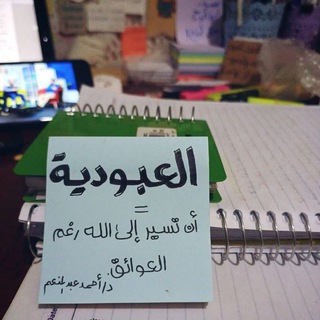 العبودية
=
أن تسير إلى الله رغم
العوائق.
د/أحمد عبد المنعم